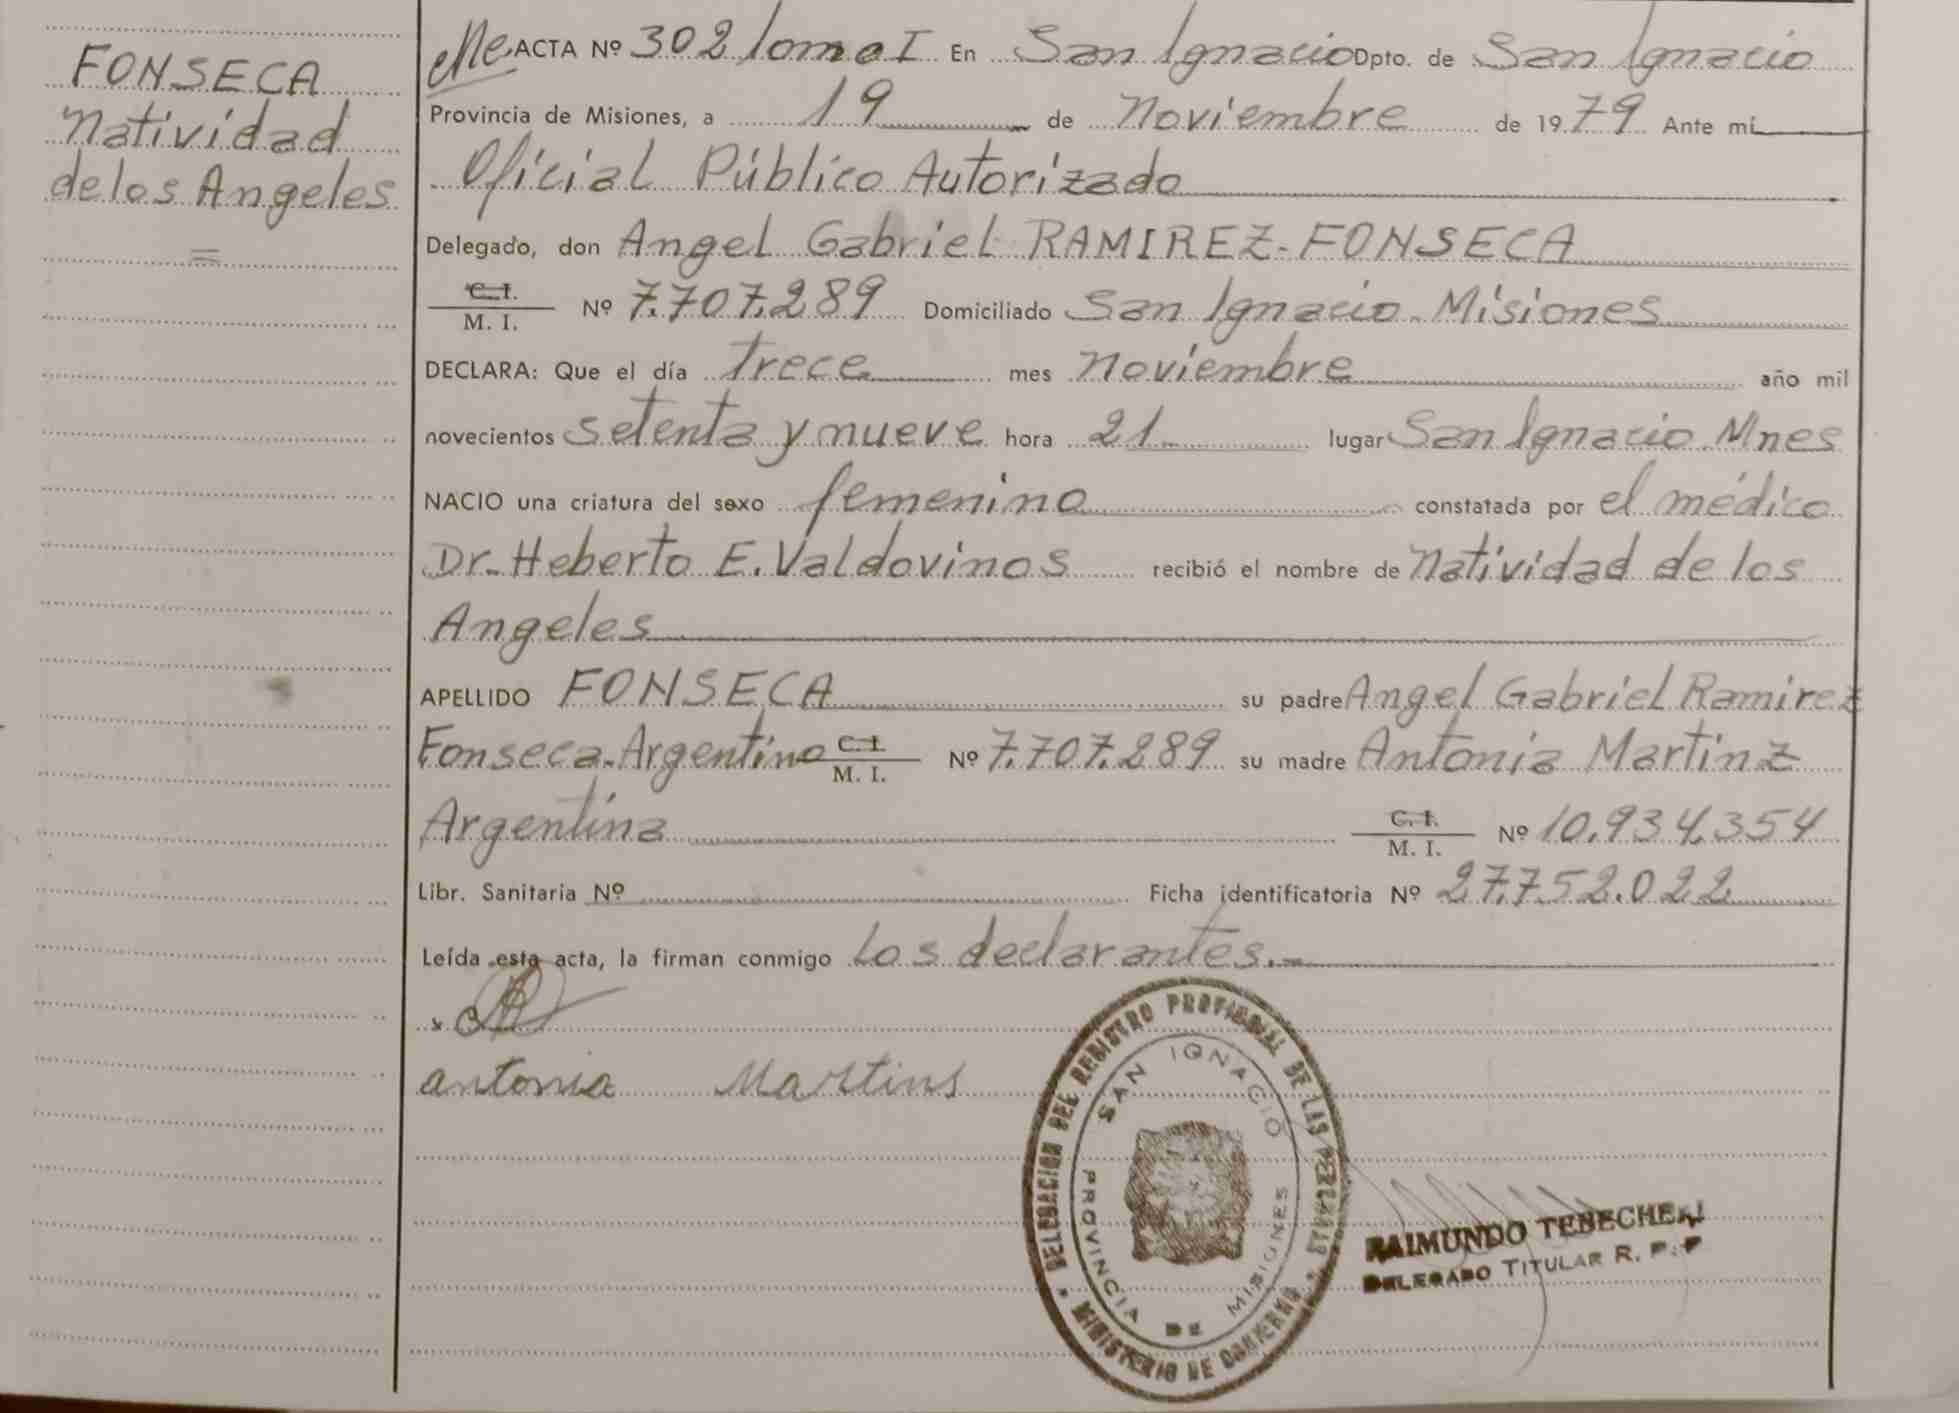 FONSECA
Natividad
de los Angeles
=
ACTA Nº 302 Tomo I En San Ignacio Dpto. de San Ignacio
Provincia de Misiones, a 19 de Noviembre de 1979 Ante mí
Oficial Público Autorizado
Delegado, don Angel Gabriel RAMIREZ-FONSECA
C.I.
M. I. Nº 7.707.289 Domiciliado San Ignacio. Misiones
DECLARA: Que el día trece mes Noviembre año mil
novecientos setenta y nueve hora 21 lugar San Ignacio Mnes
NACIO una criatura del sexo femenino constatada por el médico
Dr. Heberto E. Valdovinos recibió el nombre de Natividad de los
Angeles
APELLIDO FONSECA su padre Angel Gabriel Ramirez
Fonseca-Argentino C.I.
M. I. Nº 7.707.289 su madre Antonia Martinz
Argentina C.I.
M. I. Nº 10.934.354
Libr. Sanitaria Nº Ficha identificatoria Nº 27.752.022
Leída esta acta, la firman conmigo los declarantes.-
antonia Martins
DELEGACION DEL REGISTRO PROVINCIAL DE LAS PERSONAS
SAN IGNACIO
PROVINCIA DE MISIONES
MINISTERIO DE GOBIERNO
RAIMUNDO
DELEGADO TITULAR R. P. P